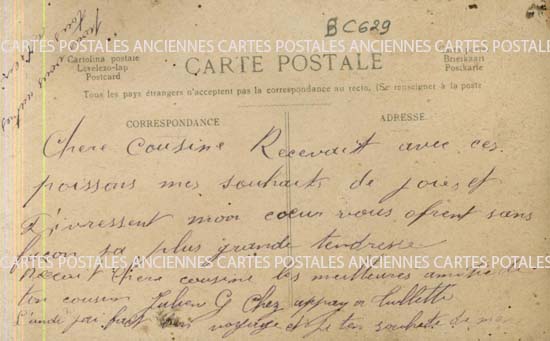 BC629
CARTES POSTALES ANCIENNES CARTES POSTALES ANCIENNES CARTES POSTALES
Cartolina postale
Levelezo-lap
Postcard
CARTE POSTALE
Briefkaart
Postkarte
Tous les pays étrangers n'acceptent pas la correspondance au recto. (Se renseigner à la poste
CORRESPONDANCE
ADRESSE
Chere Cousine Recevait avec ces
poissons mes souhaits de joies et
D'ivressent mon coeur vous ofrent sans
façon sa plus grande tendresse
CARTES POSTALES ANCIENNES CARTES POSTALES ANCIENNES CARTES POSTALES
Recoit chere cousine les meilleures
ton cousin Julien G chez
L'undi j'ai fait voyage et je ten souhaite